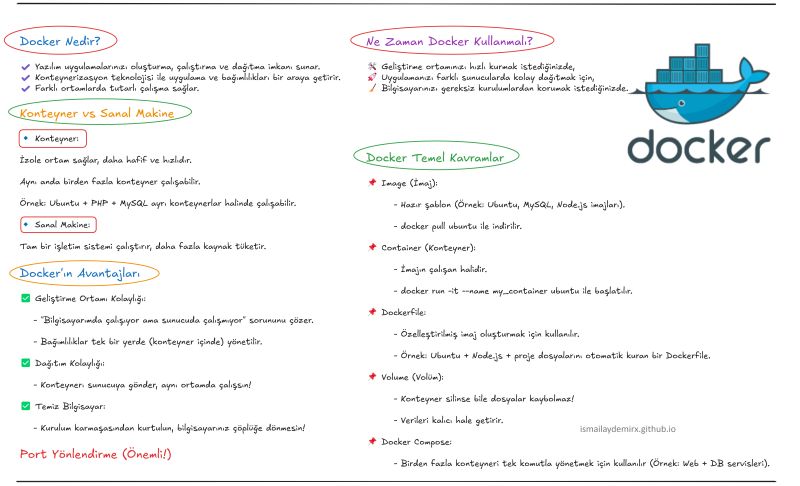 Docker Nedir?
Yazılım uygulamalarınızı oluşturma, çalıştırma ve dağıtma imkanı sunar.
Konteynerizasyon teknolojisi ile uygulama ve bağımlılıkları bir araya getirir.
Farklı ortamlarda tutarlı çalışma sağlar.
Konteyner vs Sanal Makine
Konteyner:
İzole ortam sağlar, daha hafif ve hızlıdır.
Aynı anda birden fazla konteyner çalışabilir.
Örnek: Ubuntu + PHP + MySQL ayrı konteynerlar halinde çalışabilir.
Sanal Makine:
Tam bir işletim sistemi çalıştırır, daha fazla kaynak tüketir.
Docker'ın Avantajları
✅ Geliştirme Ortamı Kolaylığı:
- "Bilgisayarımda çalışıyor ama sunucuda çalışmıyor" sorununu çözer.
- Bağımlılıklar tek bir yerde (konteyner içinde) yönetilir.
✅ Dağıtım Kolaylığı:
- Konteynerı sunucuya gönder, aynı ortamda çalışsın!
✅ Temiz Bilgisayar:
- Kurulum karmaşasından kurtulun, bilgisayarınız çöplüğe dönmesin!
Port Yönlendirme (Önemli!)
Ne Zaman Docker Kullanmalı?
🛠 Geliştirme ortamınızı hızlı kurmak istediğinizde,
🚀 Uygulamanızı farklı sunucularda kolay dağıtmak için,
🧹 Bilgisayarınızı gereksiz kurulumlardan korumak istediğinizde.
docker
Docker Temel Kavramlar
📌 Image (İmaj):
- Hazır şablon (Örnek: Ubuntu, MySQL, Node.js imajları).
- docker pull ubuntu ile indirilir.
📌 Container (Konteyner):
- İmajın çalışan halidir.
- docker run -it --name my_container ubuntu ile başlatılır.
📌 Dockerfile:
- Özelleştirilmiş imaj oluşturmak için kullanılır.
- Örnek: Ubuntu + Node.js + proje dosyalarını otomatik kuran bir Dockerfile.
📌 Volume (Volüm):
- Konteyner silinse bile dosyalar kaybolmaz!
- Verileri kalıcı hale getirir.
ismailaydemirx.github.io
📌 Docker Compose:
- Birden fazla konteyneri tek komutla yönetmek için kullanılır (Örnek: Web + DB servisleri).